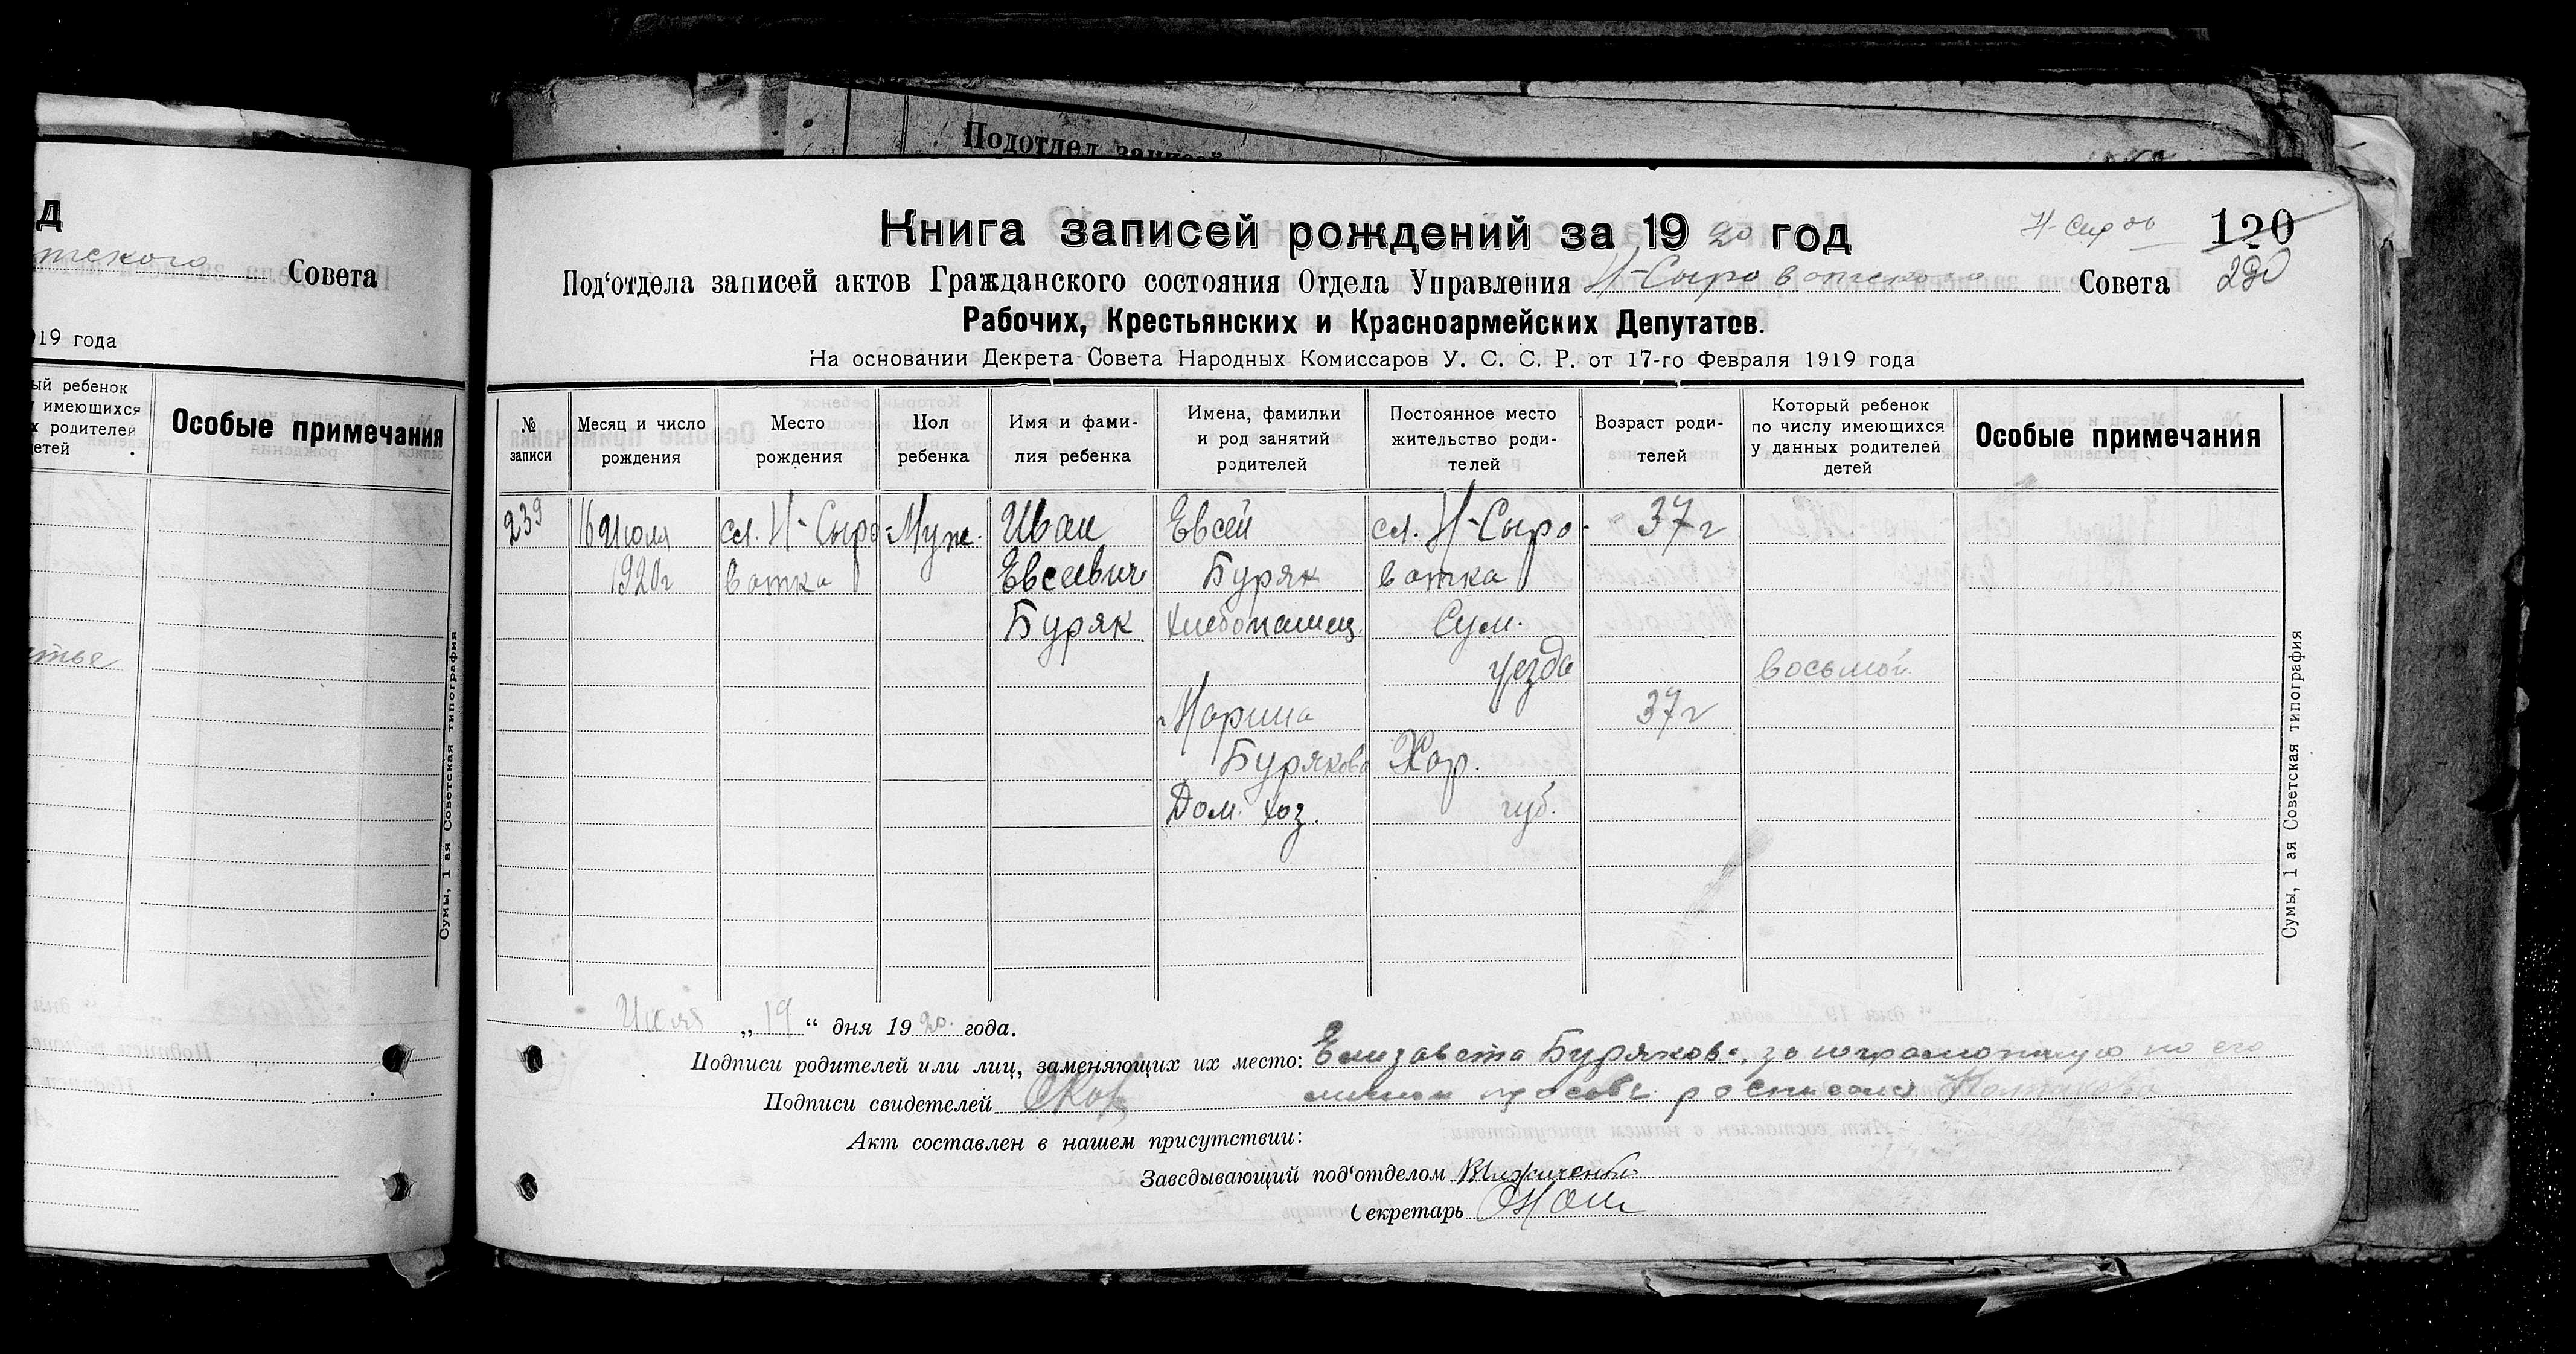 Подотдел записей
д
тского Совета
919 года
ый ребенок
у имеющихся
х родителей
детей
Особые примечания
тье
Сумы, 1 ая Советская типография
Книга записей рождений за 1920 год
Н-Сыров
120
230
Под'отдела записей актов Гражданского состояния Отдела Управления Н-Сыроватского Совета
Рабочих, Крестьянских и Красноармейских Депутатов.
На основании Декрета Совета Народных Комиссаров У. С. С. Р. от 17-го Февраля 1919 года
№ записи
Месяц и число рождения
Место рождения
Пол ребенка
Имя и фами-лия ребенка
Имена, фамилии и род занятий родителей
Постоянное место жительство роди-телей
Возраст роди-телей
Который ребенок по числу имеющихся у данных родителей детей
Особые примечания
239 16 Июля сл. Н-Сыро- Муж. Иван Евсей сл. Н-Сыро- 37 г
1920 г ватка Евсеевич Буряк ватка
Буряк хлебопашец. Сум.
уезда восьмой
Марина 37 г
Бурякова Хар.
Дом. хоз. губ.
Сумы, 1 ая Советская типография
Июля „19“ дня 1920 года.
Подписи родителей или лиц, заменяющих их место: Елизавета Бурякова, за неграмотную по его
личной просьбе росписался
Подписи свидетелей
Акт составлен в нашем присутствии:
Заведывающий под'отделом
Секретарь